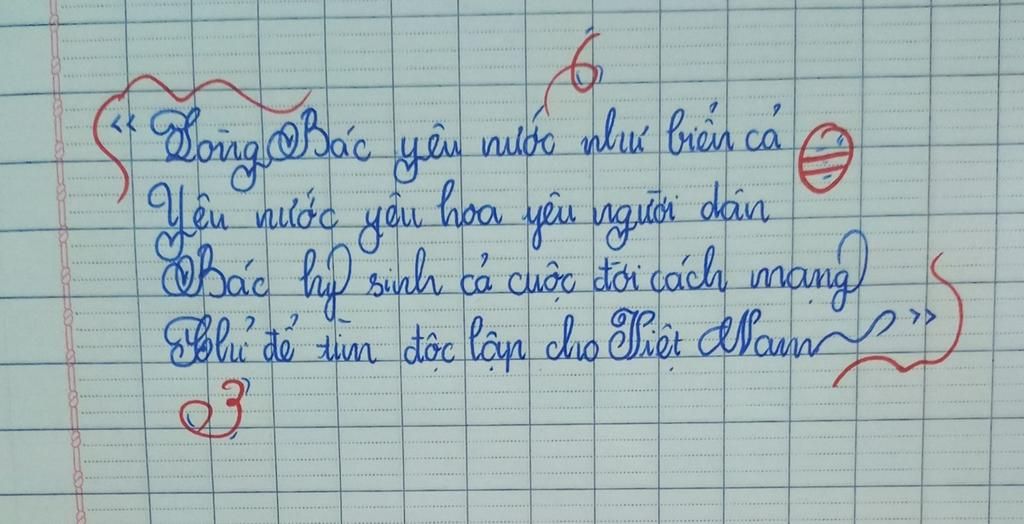 6
"Lòng Bác yêu nước như biển cả
Yêu nước yêu hoa yêu người dân
Bác hy sinh cả cuộc đời cách mạng
Chỉ để tìm độc lập cho Việt Nam"
03